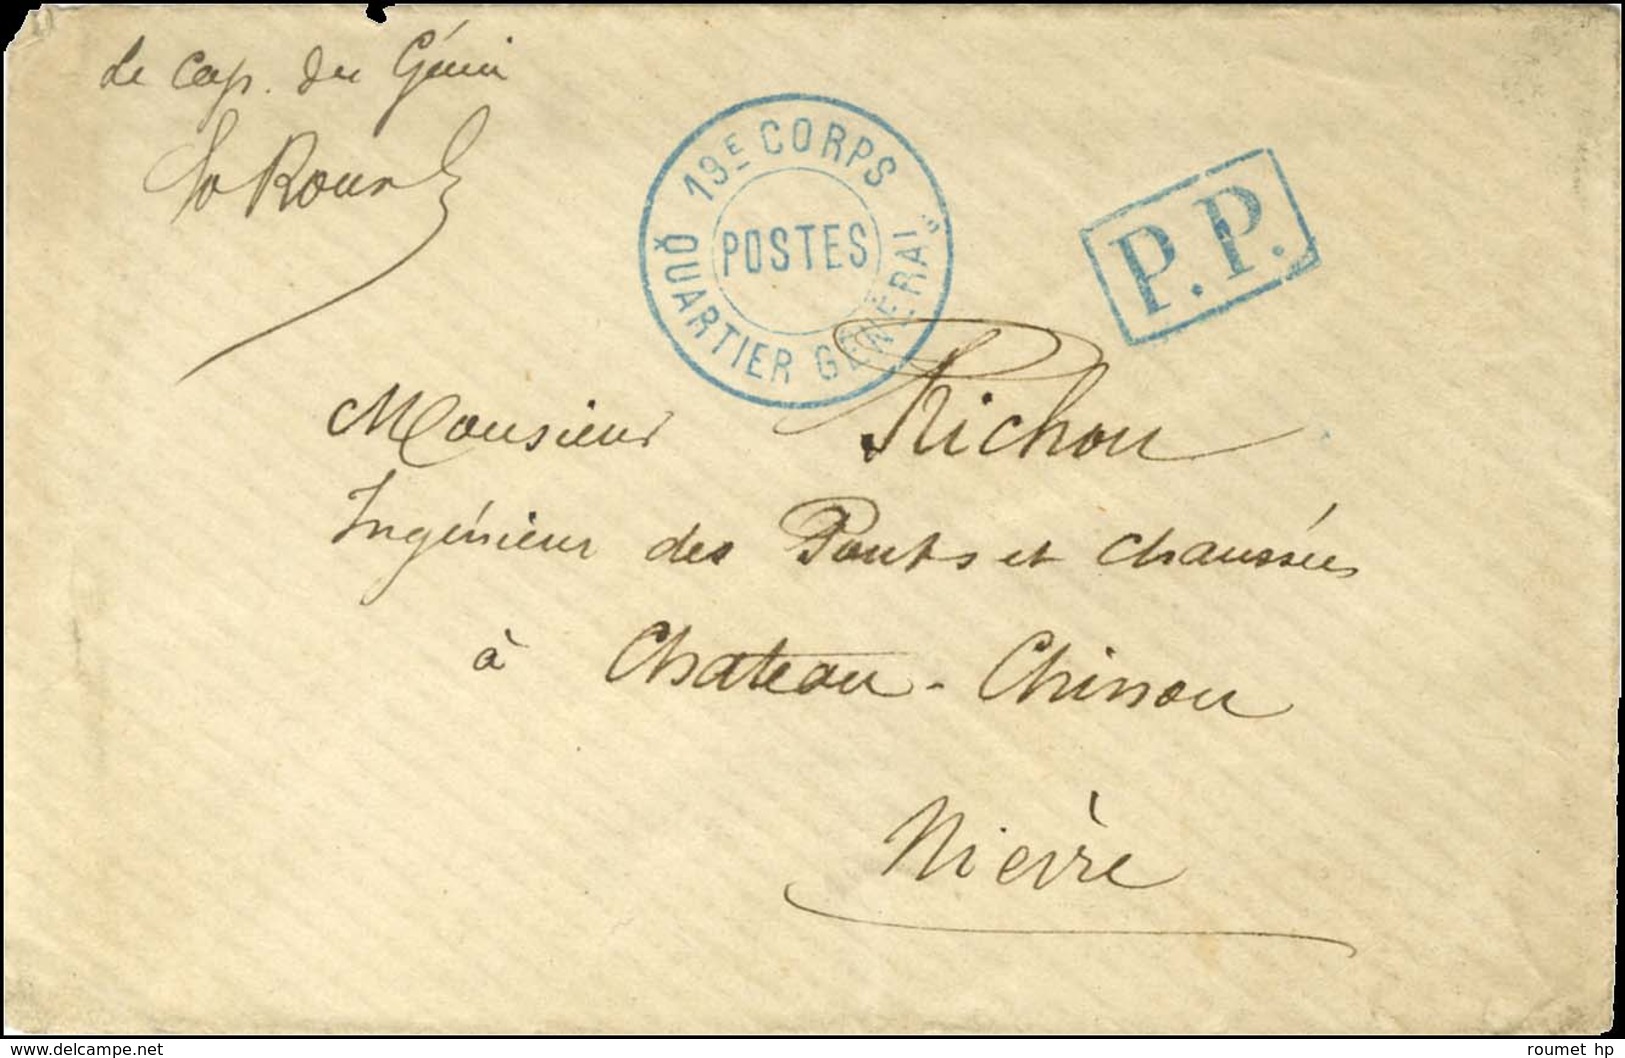 Le Cap. du Génie
19E CORPS
POSTES
QUARTIER GÉNÉRAL
P.P.
Monsieur Richou
Ingénieur des Ponts et Chaussées
à Chateau-Chinon
Nièvre
www.delcampe.net
roumet hp